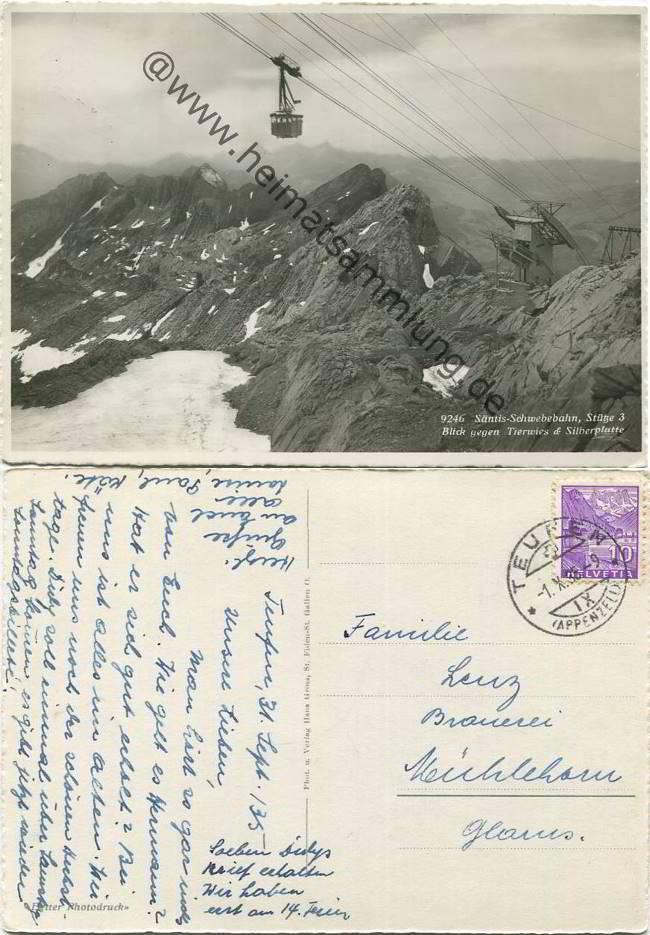 @www.heimatsammlung.de
9246 Säntis-Schwebebahn, Stütze 3
Blick gegen Tierwies & Silberplatte
Teufen, 31. Sept. 135
Unsere Lieben,
Man hört so gar nichts
von Euch. Wie geht es Hermann?
Hat er sich gut erholt? Bei
uns ist alles im alten. Wir
freuen uns noch der schönen Herbst-
tage. Didy soll einmal über
Sonntag kommen, es gibt jetzt wieder
Sonntagsbillete!
Herzl.
Grüsse
an Euch
alle
Louise, Paul,
Soeben Didys
Brief erhalten
Wir haben
erst am 14. Ferien
Phot. u. Verlag Hans Gross, St. Fiden-St. Gallen O.
«Photodruck»
HELVETIA
10
TEUFEN
(APPENZELL)
1.X.
IX
Familie
Lenz
Brauerei
Mühlehorn
Glarus.